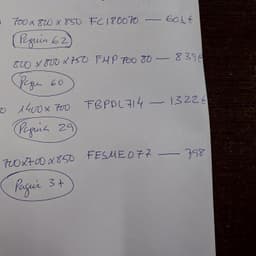 700x800x850 FC180070 — 604€
Pagina 62
800x800x750 FMP 700 80 — 839€
Pagin 60
1400x700 FBPDL714 — 1322€
Pagina 29
700x700x850 FESME077 — 798
Pagina 37